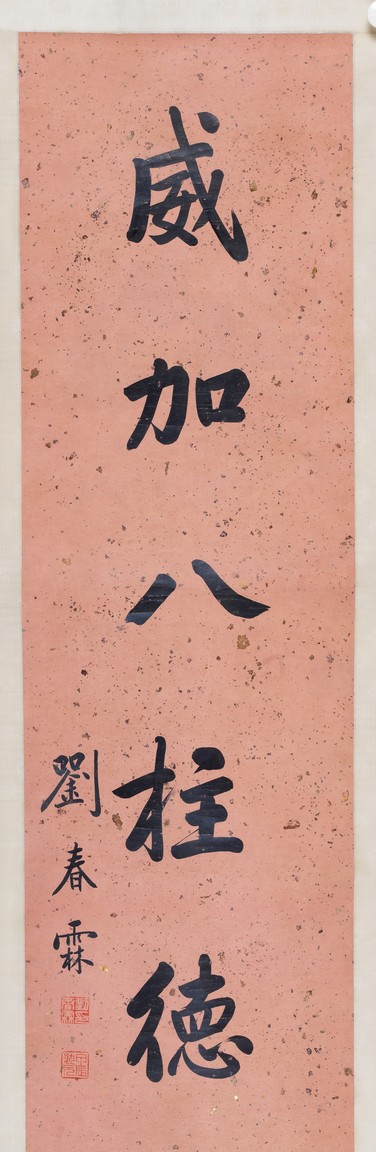 威加八柱德
劉春霖